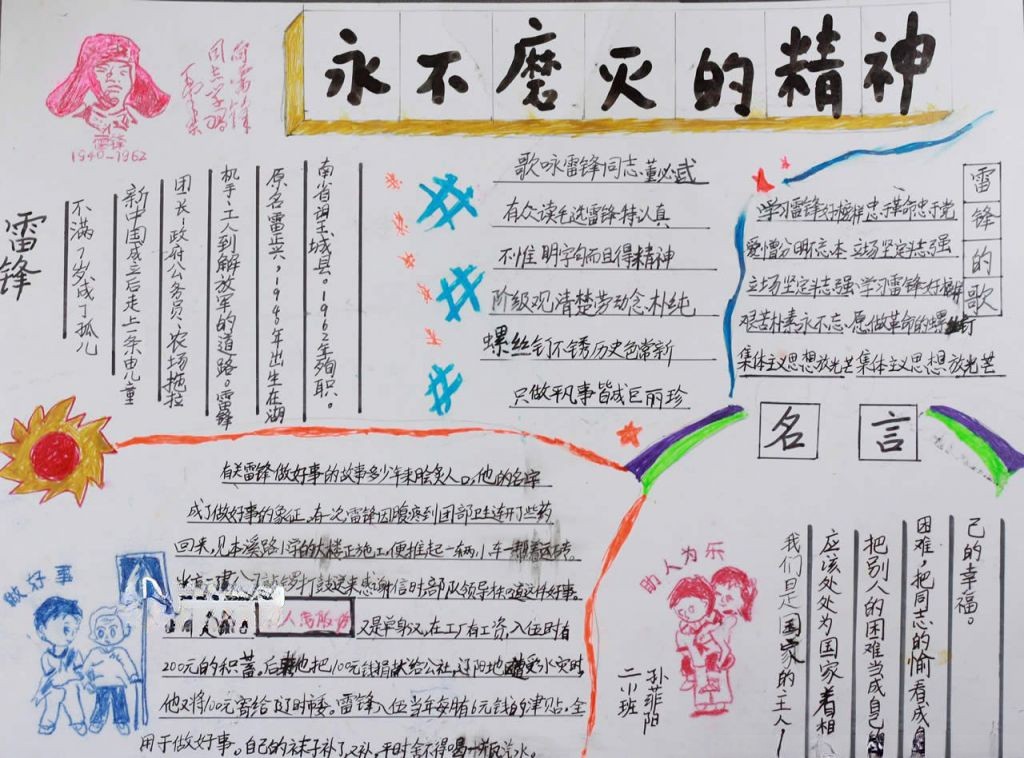 永不磨灭的精神
向雷锋
同志学习
毛泽东
雷锋
1940-1962
雷锋
原名雷正兴,1940年出生在湖
南省望城县。1962年殉职。
机手、工人到解放军的道路。雷锋
团长、政府公务员、农场拖拉
新中国成立后走上一条由儿童
不满7岁成了孤儿
歌咏雷锋同志董必武
有众读毛选雷锋特认真
不惟明字句而且得精神
阶级观清楚劳动念朴纯
螺丝钉不锈历史色常新
只做平凡事皆成巨丽珍
雷锋的歌
学习雷锋好榜样忠于革命忠于党
爱憎分明不忘本立场坚定斗志强
立场坚定斗志强学习雷锋好榜样
艰苦朴素永不忘愿做革命的螺丝钉
集体主义思想放光芒集体主义思想放光芒
有关雷锋做好事的故事多少年来脍炙人口,他的名字
成了做好事的象征,有一次雷锋因腹疼到团部卫生连开了些药
回来,见本溪路小学的大楼正施工,便推起一辆小车帮着运砖。
敲锣打鼓送来感谢信时,部队领导才知道这件好事。
人民服务
又是单身汉,在工厂有工资,入伍时有
200元的积蓄。后来他把100元钱捐献给公社,辽阳地遭受水灾时,
他又将100元寄给辽阳市委。雷锋入伍当年每月6元钱的津贴,全
用于做好事。自己的袜子补了又补,平时舍不得喝一瓶汽水。
做好事
助人为乐
二小班
孙菲阳
名言
我们是国家的主人
应该处处为国家着想
把别人的困难当成自己的
困难,把同志的愉看成自
己的幸福。